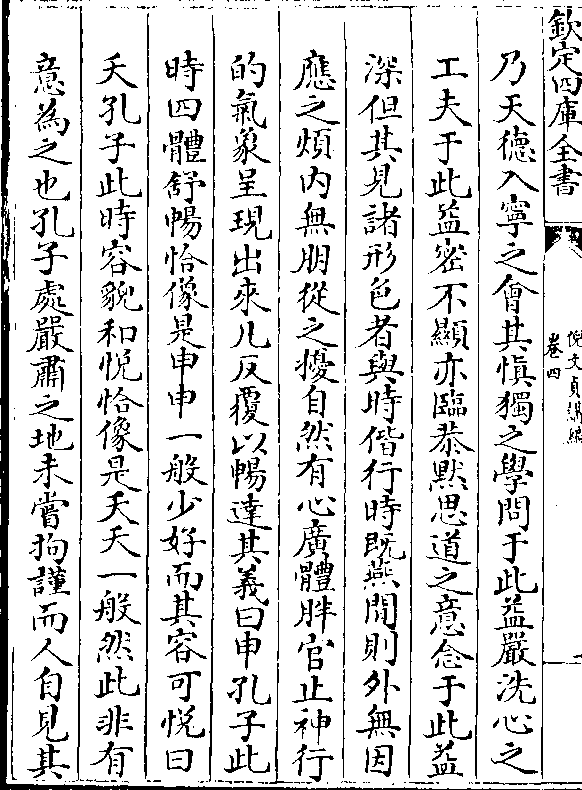 欽定四庫全書
倪文貞講編
卷四
乃天德入寧之會其慎獨之學問于此益嚴洗心之
工夫于此益密不顯亦臨恭黙思道之意念于此益
深但其見諸形色者與時偕行時既燕閒則外無因
應之煩内無朋從之擾自然有心廣體胖官止神行
的氣象呈現出來凡反覆以暢達其義曰申孔子此
時四體舒暢恰像是申申一般少好而其容可悦曰
夭孔子此時容貌和悦恰像是夭夭一般然此非有
意為之也孔子處嚴肅之地未嘗拘謹而人自見其